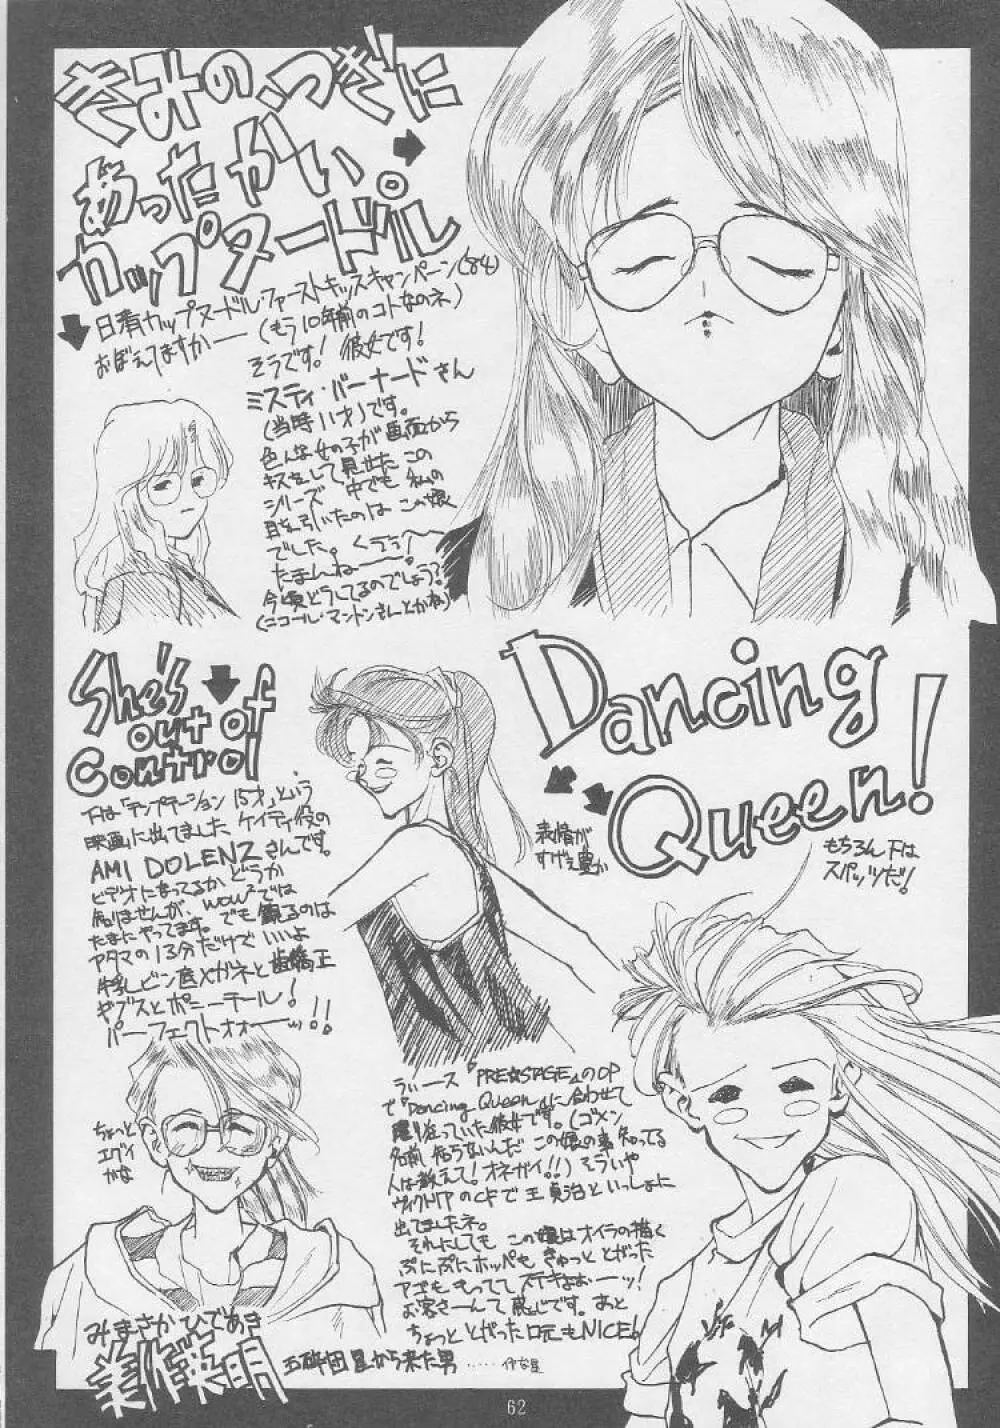 きみの、つぎに
あったかい
カップヌードル。
日清カップヌードル・ファーストキッスキャンペーン('84)
おぼえてますかー (もう10年前のコトなのネ)
そうです! 彼女です!
ミスティ・バーナードさん
(当時11才)です。
色んな女の子が画面から
キスをして見せたこの
シリーズ 中でも私の
目を引いたのはこの娘
でした。くうぅ〜
たまんねー!
今頃どうしてるのでしょう?
(ニコール・マントンさんとかね)
She's
out of
Control
下は「テンプテーション15才」という
映画に出てました ケイティ役の
AMI DOLENZさんです。
ビデオになってるかどうか
知りませんが、WOW²では
たまにやってます。でも観るのは
アタマの13分だけでいいよ
牛乳ビン底メガネと歯矯正
ギブスとポニーテール!
パーフェクトォォーッ!!
ちょっと
エグイ
かな
Dancing
Queen!
表情が
すげえ豊か
もちろん下は
スパッツだ!
うぃース『PRE☆STAGE』のOP
で『Dancing Queen』に合わせて
踊り狂っていた彼女です。(ゴメン
名前知らないんだ この娘の事知ってる
人は教えて! オネガイ!!) そういや
ヴィクトリアのCFで王貞治といっしょに
出てましたネ。
それにしても この娘はオイラの描く
ぷにぷにホッペも きゅっと とがった
アゴも もってて ステキよぉーッ!
お客さーんて感じです。あと
ちょっと とがった口元もNICE!
みまさかひであき
美作英明
五砕団星から来た男
62